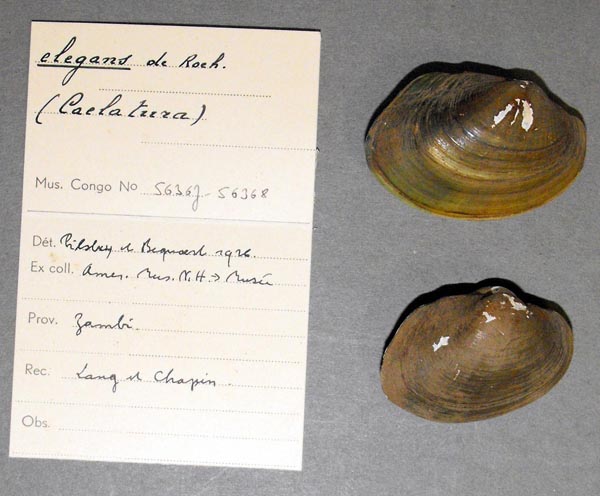 elegans de Roch.
(Caelatura)
Mus. Congo No 56367-56368
Dét. Pilsbry et Bequaert 1926.
Ex coll. Amer. Mus. N.H. → Musée
Prov. Zambi.
Rec. Lang et Chapin.
Obs.